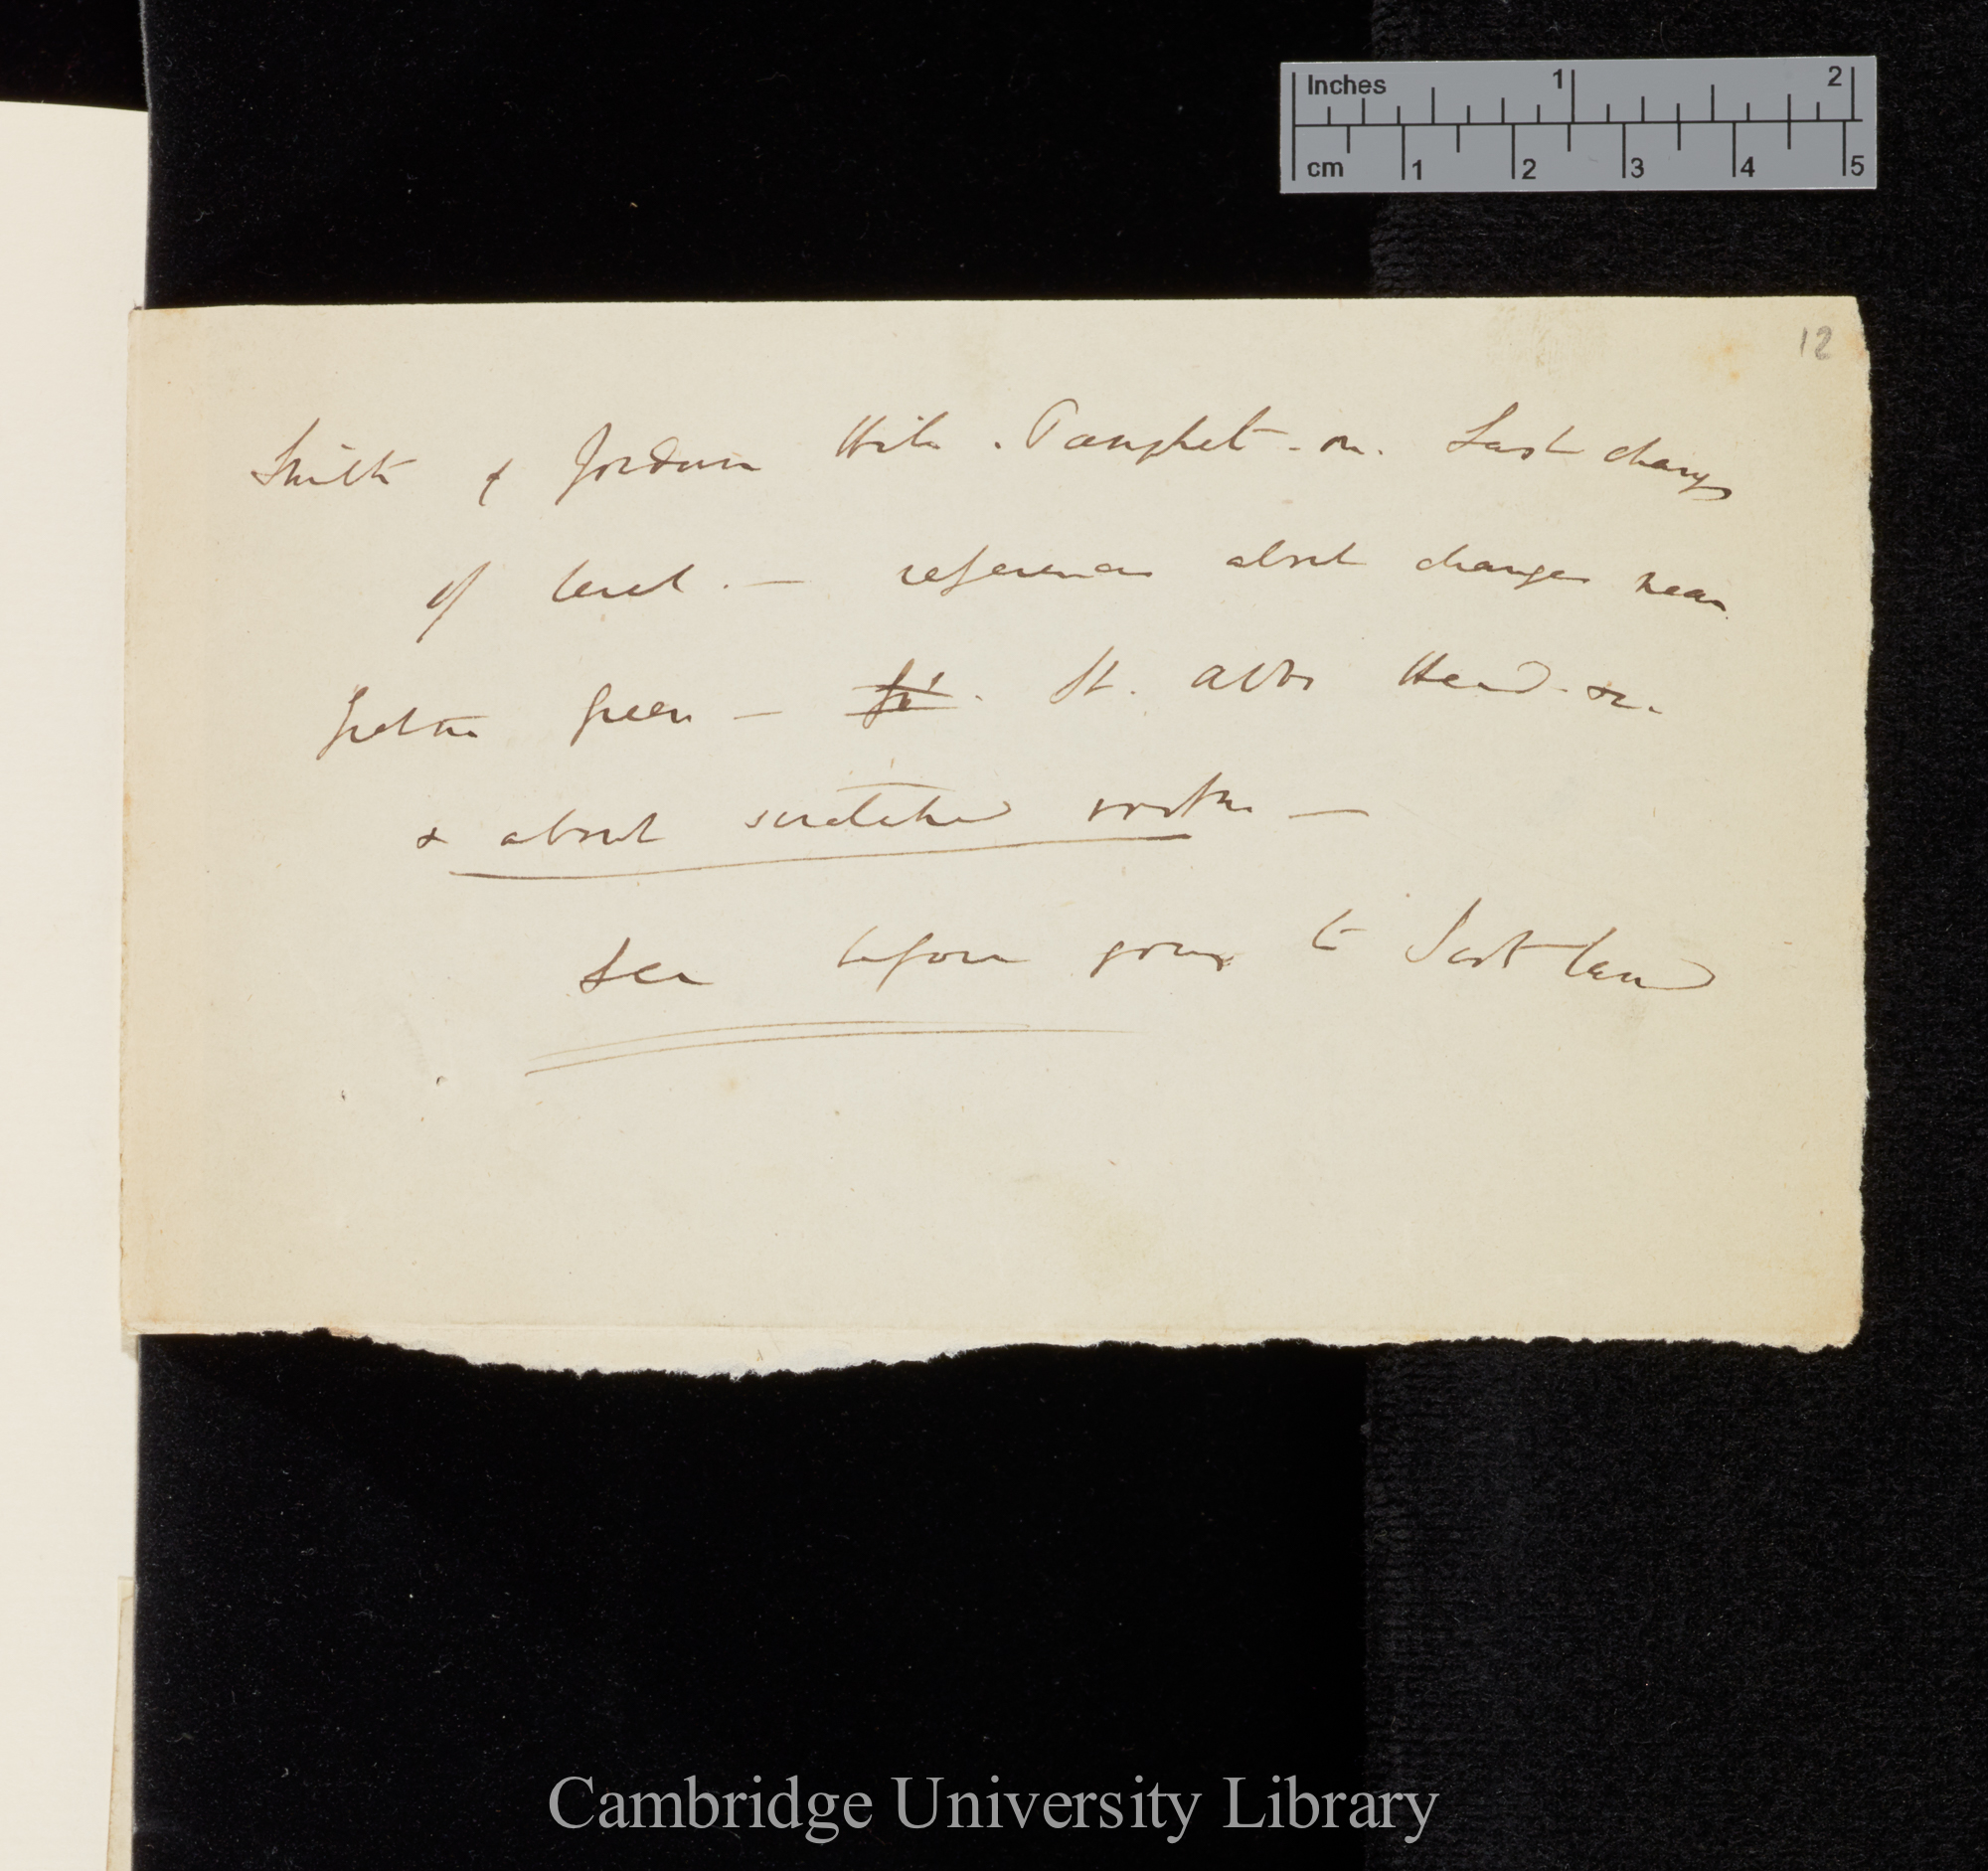 Inches 1 2
cm 1 2 3 4 5
12
Smith of Jordan Hill. Pamphlet - on. Last change
of level. — references about changes near
Gretna Green — St. Abbs Head &c.
& about scratched rocks —
See before going to Scotland
Cambridge University Library